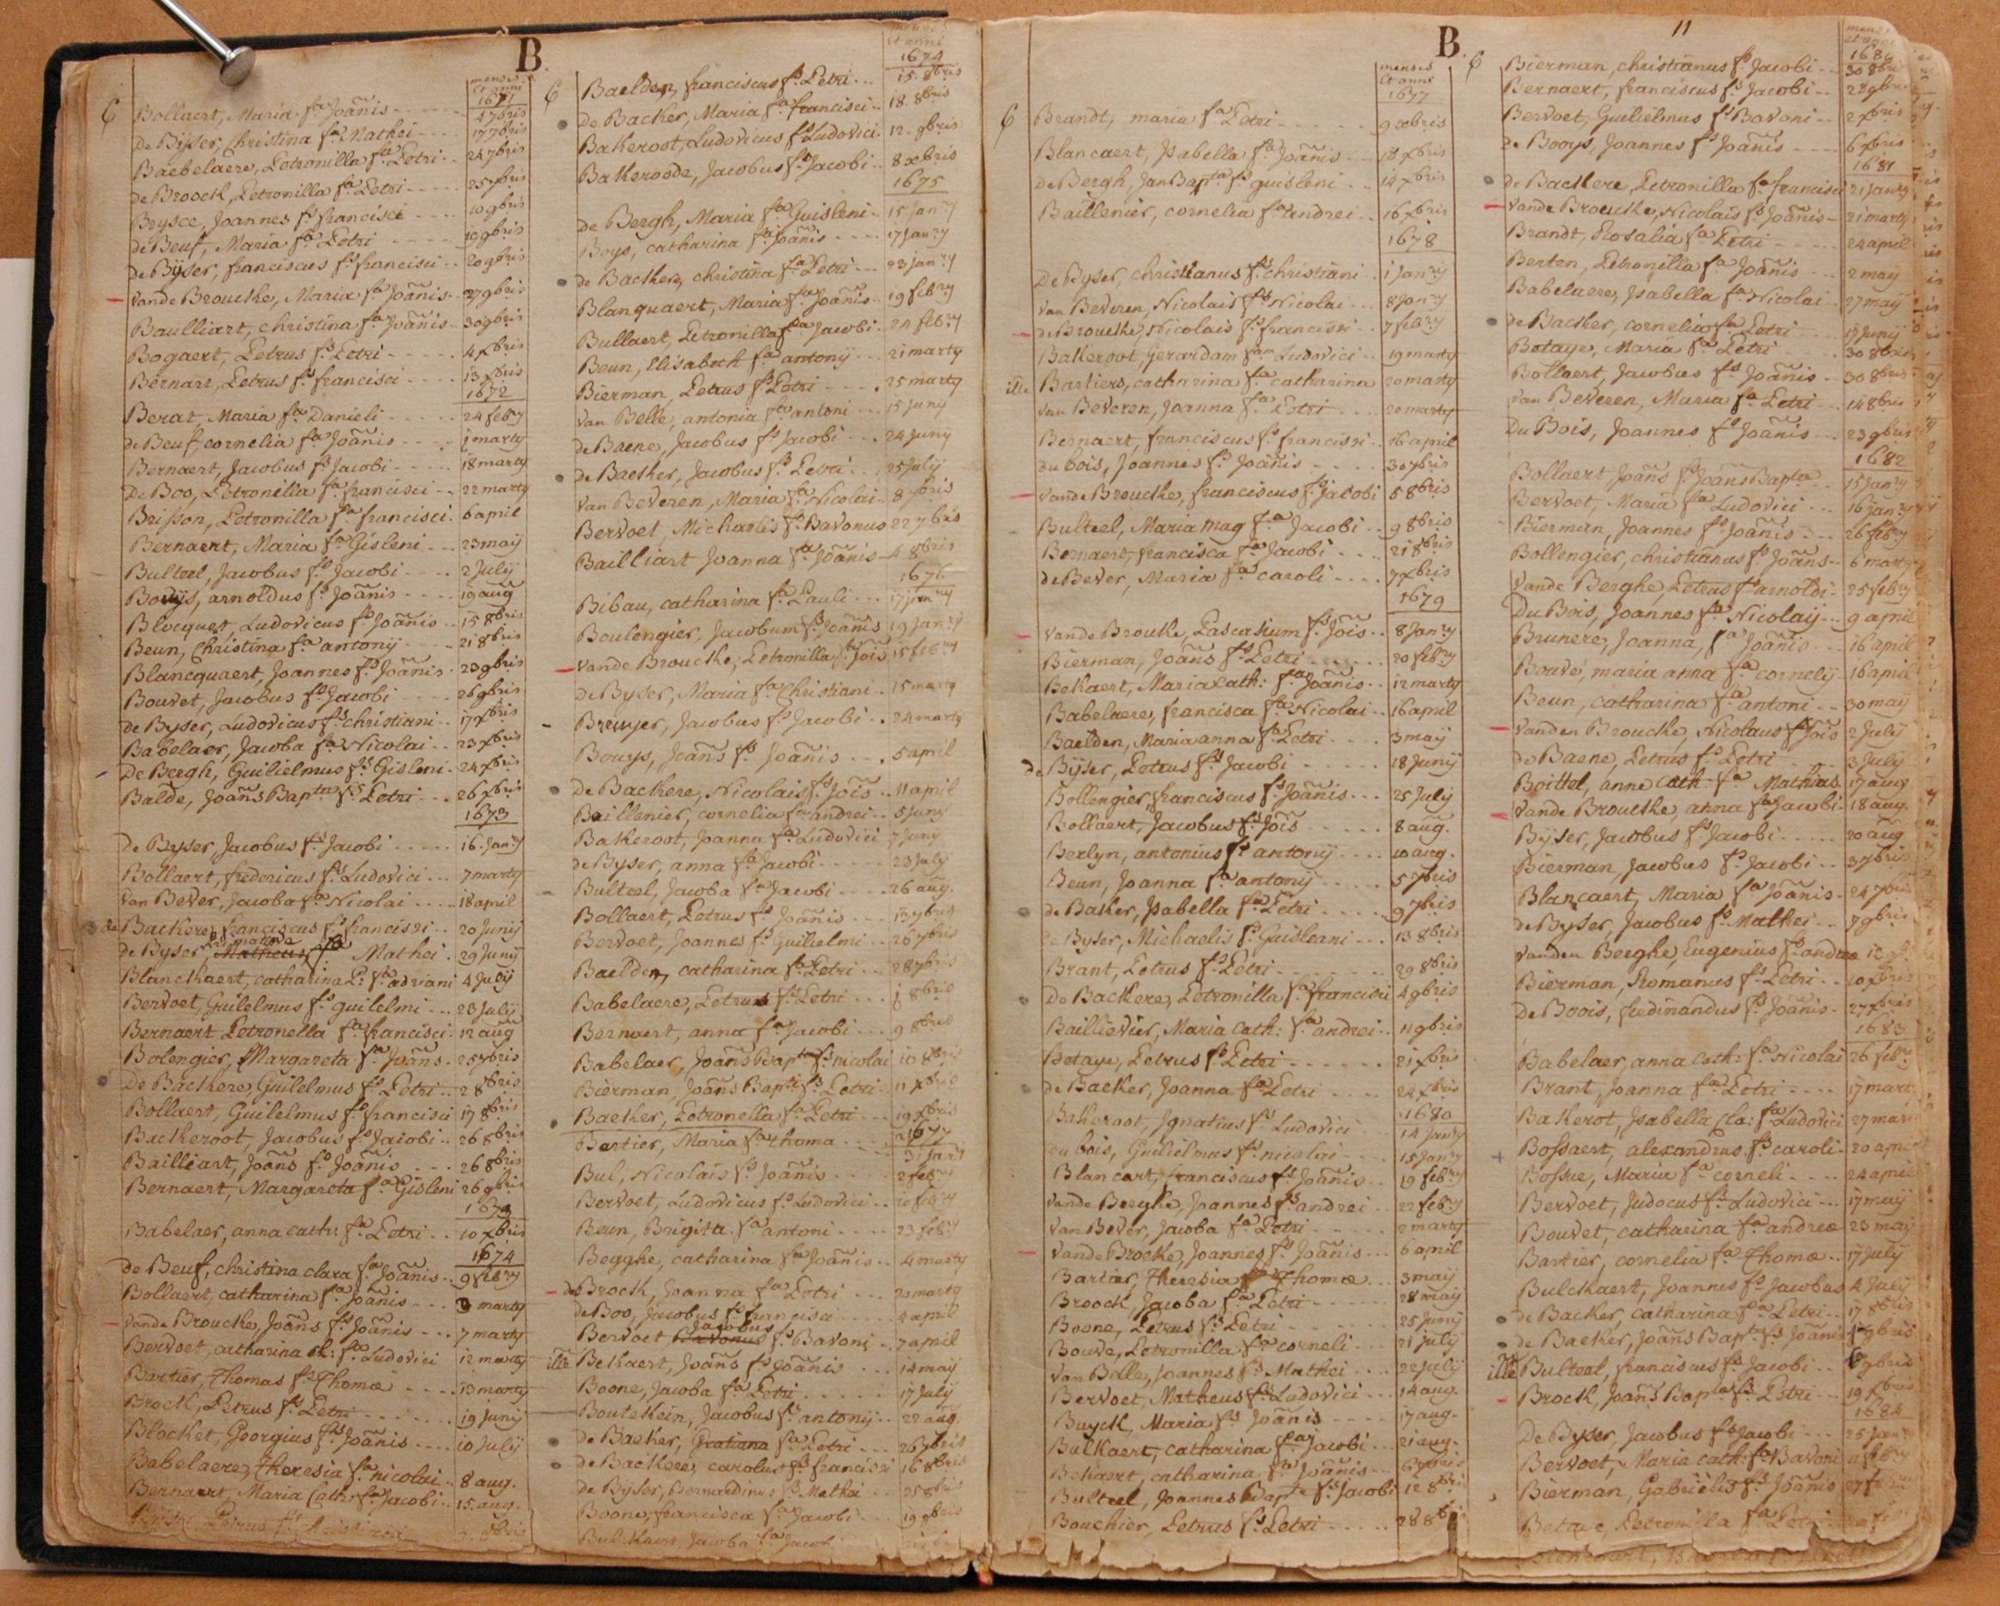 B.
menses
et anni
1671
Bollaert, Maria fa Joãnis 4 7bris
de Bijser, Christina fa Mathei 17 7bris
Baebelaere, Petronilla fa Petri 24 7bris
de Broock, Petronilla fa Petri 25 7bris
Brysce, Joannes fs francisci 10 9bris
de Beuf, Maria fa Petri 19 9bris
de Bÿser, franciscus fs francisci 20 9bris
vande Broucke, Maria fa Joãnis 27 9bris
Baulliart, christina fa Joãnis 30 9bris
Bogaert, Petrus fs Petri 4 xbris
Bernart, Petrus fs francisci 13 xbris
1672
Berat, Maria fa Danieli 24 feb:ry
de Beuf, cornelia fa Joãnis 1 marty
Bernaert, Jacobus fs Jacobi 18 marty
De Boo, Petronilla fa francisci 22 marty
Brisson, Petronilla fa francisci 6 april
Bernaert, Maria fa Gisleni 23 maÿ
Bulteel, Jacobus fs Jacobi 2 July
Booijs, arnoldus fs Joãnis 19 aug
Blocquet, Ludovicus fs Joãnis 15 8bris
Beun, Christina fa antonij 21 8bris
Blancquaert, Joannes fs Joãnis 23 9bris
Bouvet, Jacobus fs Jacobi 26 9bris
de Byser, Ludovicus fs christiani 17 xbris
Babelaer, Jacoba fa Nicolai 23 xbris
De Bergh, Guilielmus fs Gisleni 24 xbris
Balde, Joãns Bapta fs Petri 26 xbris
1673
de Byser, Jacobus fs Jacobi 16 Janry
Bollaert, fredericus fs Ludovici 7 marty
van Bever, Jacoba fa Nicolai 18 april
de Backere, franciscus fs francisci 20 Junij
de Byser, fa Mathei 29 Junij
Blanckaert, catharina fa adriani 4 Julÿ
Bervoet, Guilelmus fs guilelmi 23 July
Bernaert Petronella fa francisci 12 aug
Bolengier, Margareta fa Joãns 25 7bris
De Backere, Guilelmus fs Petri 2 8bris
Bollaert, Guilelmus fs francisci 17 8bris
Backeroot, Jacobus fs Jacobi 26 8bris
Bailliart, Joãns fs Joãnis 26 8bris
Bernaert, Margareta fa Gisleni 26 9bris
1673
Babelaer, anna cath: fa Petri 10 xbris
1674
de Beuf, christina clara fa Joãnis 9 feb:ry
Bollaert, catharina fa Joãnis marty
vande Broucke, Joãns fs Joãnis 7 marty
Bervoet, catharina fa Ludovici 12 marty
Bartier, Thomas fs Thomæ 13 marty
Brock, Petrus fs Petri 19 Junij
Blocket, Georgius fs Joãnis 10 Julij
Babelaere, Theresia fa nicolai 8 aug.
Bernaert, Maria Cath: fa Jacobi 15 aug.
et anni
1674
Baelden, franciscus fs Petri 15 8bris
de Backer, Maria fa francisci 18 8bris
Bakeroot, Ludovicus fs Ludovici 12 9bris
Bakeroode, Jacobus fs Jacobi 8 xbris
1675
de Bergh, Maria fa Guisleni 15 Janry
Boys, catharina fa Joãnis 17 Janry
de Backer, christina fa Petri 23 Janry
Blanquaert, Maria fa Joãnis 19 feb:ry
Bullaert, Petronilla fa Jacobi 24 feb:ry
Beun, Elisabeth fa antonij 21 marty
Bierman, Petrus fs Petri 25 marty
van Belle, antonia fa antoni 15 Junij
de Baene, Jacobus fs Jacobi 24 Juny
de Backer, Jacobus fs Petri 25 Julij
van Beveren, Maria fa Nicolai 8 7bris
Bervoet, Michaelis fs Bavonus 22 7bris
Bailliart Joanna fa Joãnis 4 8bris
1676
Bibau, catharina fa Pauli 17 Janry
Boulengier, Jacobum fs Joãnis 19 Janry
vande Broucke, Petronilla fa Jois 15 feb:ry
de Byser, Maria fa Christiani 15 marty
Brewyer, Jacobus fs Jacobi 24 marty
Bouys, Joãns fs Joãnis 5 april
de Backere, Nicolais fs Jois 11 april
Baillenier, cornelia fa andrei 5 Juny
Bakeroot, Joanna fa Ludovici 7 Juny
de Byser, anna fa Jacobi 23 July
Bulteel, Jacoba fa Jacobi 26 aug.
Bollaert, Petrus fs Joãnis 13 7bris
Bervoet, Joannes fs Guilielmi 26 7bris
Baelden, catharina fa Petri 28 7bris
Babelaere, Petrus fs Petri 1 8bris
Bernaert, anna fa Jacobi 9 8bris
Babelaer, Joãns Bapta fs nicolai 10 8bris
Bierman, Joãns Bapta fs Petri 11 xbris
Backer, Petronella fa Petri 19 xbris
1677
Bartier, Maria fa thoma 31 Janry
Bul, Nicolais fs Joãnis 2 feb:ry
Bervoet, Ludovicus fs Ludovici 20 feb:ry
Beun, Brigita fa antoni 23 feb:ry
Begghe, catharina fa Joãnis 4 marty
de Brock, Joanna fa Petri 20 marty
de Boo, Jacobus fs francisci 2 april
Bervoet Jacobus fs Bavoni 7 april
ille Bekaert, Joãns fs Joãnis 14 maÿ
Boone, Jacoba fa Petri 17 July
Boutekein, Jacobus fs antonij 22 aug.
de Backer, Gratiana fa Petri 26 7bris
de Backere, carolus fs francisci 16 8bris
de Byser, Bernardinus fs Mathei 25 8bris
Boone, francisca fa Jacobi 19 9bris
Bulckaert, Jacoba fa Jacobi
B.
menses
et anni
1677
Brandt, maria fa Petri 9 8bris
Blancaert, Isabella fa Joãnis 10 xbris
de Bergh, Jan Bapta fs guisleni 14 xbris
Baillenier, cornelia fa andrei 16 xbris
1678
De Byser, christianus fs christiani 1 Janry
van Beveren, Nicolais fs Nicolai 8 Janry
de Broucke, Nicolais fs francisci 7 feb:ry
Bakeroot, Gerardam fam Ludovici 19 marty
ille Bartiers, catharina fa catharina 20 marty
van Beveren, Joanna fa Petri 20 marty
Bernaert, franciscus fs francisci 16 april
du bois, Joannes fs Joãnis 30 7bris
vande Broucke, franciscus fs Jacobi 5 8bris
Bulteel, Maria mag fa Jacobi 9 8bris
Bernaert, francisca fa Jacobi 21 8bris
de Bever, Maria fa caroli 7 xbris
1679
vande Brouke, Pascasium fs Jois 8 Janry
Bierman, Joãns fs Petri 20 feb:ry
Bekaert, Maria Cath: fa Joãnis 12 marty
Babelaere, francisca fa Nicolai 16 april
Baelden, Maria anna fa Petri 3 maÿ
de Bÿser, Petrus fs Jacobi 18 Junij
Bollengier, franciscus fs Joãnis 25 July
Bollaert, Jacobus fs Jois 8 aug.
Berlyn, antonius fs antonij 10 aug.
Beun, Joanna fa antonij 5 7bris
de Backer, Isabella fa Petri 9 7bris
de Byser, Michaelis fs Guisleani 13 8bris
Brant, Petrus fs Petri 29 8bris
De Backere, Petronilla fa francisci 4 9bris
Baillievier, Maria Cath: fa andrei 11 9bris
Betaye, Petrus fs Petri 21 xbris
de Backer, Joanna fa Petri 24 xbris
1680
Bakeroot, Ignatius fs Ludovici 14 Janry
du bois, Guilielmus fs nicolai 15 Janry
Blancart, franciscus fs Joãnis 19 feb:ry
vande Berghe, Joannes fs andrei 22 feb:ry
van Bever, Jacoba fa Petri 2 marty
vande Brocke, Joannes fs Joãnis 6 april
Bartier, Theresia fa Thomæ 3 may
Broock, Jacoba fa Petri 28 may
Boone, Petrus fs Petri 25 Junij
Boude, Petronilla fa corneli 21 July
van Belle, Joannes fs Mathei 22 July
Bervoet, Matheus fs Ludovici 14 aug.
Buyck, Maria fa Joãnis 17 aug.
Bulkaert, catharina fa Jacobi 21 aug.
Bekaert, catharina fa Joãnis 6 7bris
Bulteel, Joannes Bapte fs Jacobi 12 8bris
Bouchier, Petrus fs Petri 28 8bris
11
1680
Bierman, christianus fs Jacobi 30 8bris
Bernaert, franciscus fs Jacobi 28 9bris
Bervoet, Guilielmus fs Bavoni 2 xbris
de Booys, Joannes fs Joãnis 6 xbris
1681
de Backere, Petronilla fa francisci 21 Janry
vande Broucke, Nicolais fs Joãnis 21 marty
Brandt, Rosalia fa Petri 24 april
Berten, Petronilla fa Joãnis 2 may
Babelaere, Isabella fa Nicolai 27 maÿ
de Backer, cornelia fa Petri 17 Junij
Botaye, Maria fa Petri 30 8bris
Bollaert, Jacobus fs Joãnis 30 8bris
van Beveren, Maria fa Petri 14 8bris
Du Bois, Joannes fs Joãnis 23 9bris
1682
Bollaert Joãns fs Joãns Bapta 15 Janry
Bervoet, Maria fa Ludovici 16 Janry
Bierman, Joannes fs Joãnis 26 feb:ry
Bollengier, christianus fs Joãns 6 marty
vande Berghe, Petrus fs arnoldi 25 feb:ry
Du Bois, Joannes fs Nicolaij 9 april
Brunere, Joanna, fa Joãnis 16 april
Bouvé, maria anna fa cornelij 16 april
Beun, catharina fa antoni 30 maÿ
vanden Broucke, Nicolaus fs Jois 2 July
de Baene, Petrus fs Petri 3 July
Boittel, anne Cath: fa Mathias 17 aug
vande Broucke, anna fa Jacobi 18 aug.
Byser, Jacobus fs Jacobi 20 aug
Bierman, Jacobus fs Jacobi 3 7bris
Blancaert, Maria fa Joãnis 24 7bris
de Byser, Jacobus fs Mathei 7 9bris
vanden Berghe, Eugenius fs andreæ
Bierman, Romanus fs Petri 10 xbris
de Boois, fredinandus fs Joãnis 27 xbris
1683
Babelaer, anna Cath: fa Nicolai 26 feb:ry
Brant, Joanna fa Petri 17 mart
Bakerot, Isabella Cla: fa Ludovici 27 mar
Bossaert, alexandrus fs caroli 20 april
Bosse, Maria fa corneli 24 april
Bervoet, Judocus fs Ludovici 17 maÿ
Bouvet, catharina fa andreæ 23 may
Bartier, cornelia fa Thomæ 17 July
Bulckaert, Joannes fs Jacobus 4 July
de Backer, catharina fa Petri 17 8bris
de Backer, Joãns Bapta fs Joãnis 9bris
ille Bulteel, franciscus fs Jacobi 9bris
Brock, Joãns Bapta fs Petri 19 xbris
1684
De Byser, Jacobus fs Jacobi 25 Jan
Bervoet, Maria cath: fa Bavoni
Bierman, Gabrielis fs Joãnis 27
Betaye, Petronilla fa Petri